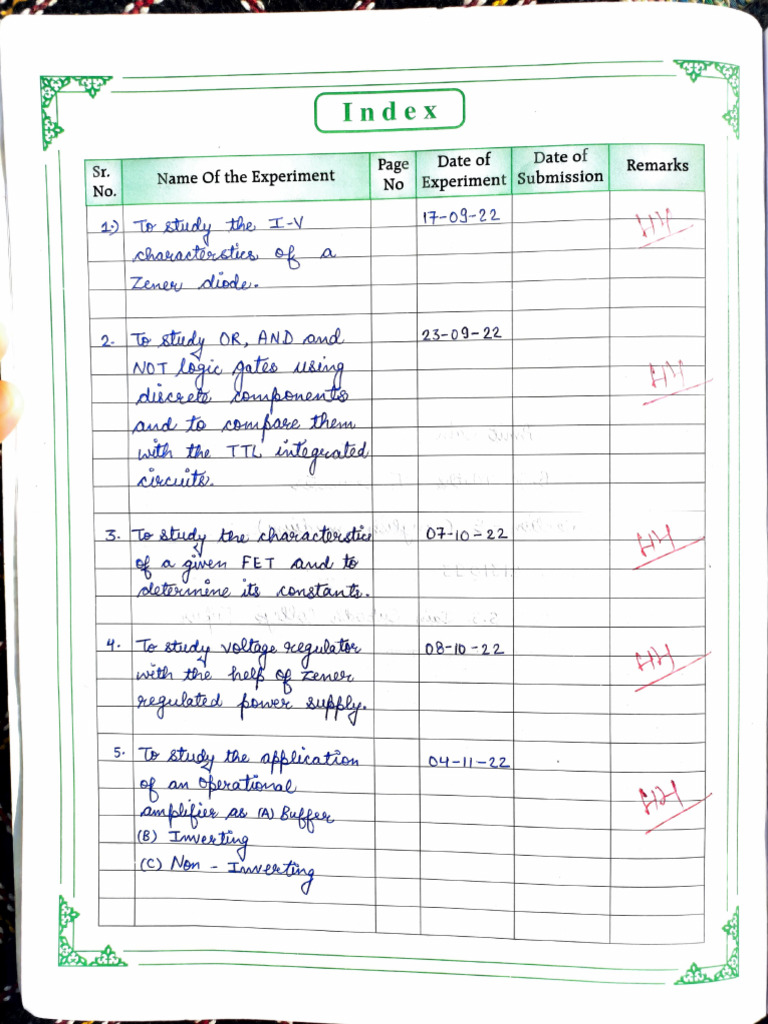 Index
Sr. No.
Name Of the Experiment
Page No
Date of Experiment
Date of Submission
Remarks
1.) To study the I-V 17-09-22
characterstics of a
Zener diode.
2. To study OR, AND and 23-09-22
NOT logic gates using
discrete components
and to compare them
with the TTL integrated
circuits.
3. To study the characterstics 07-10-22
of a given FET and to
determine its constants.
4. To study voltage regulator 08-10-22
with the help of zener
regulated power supply.
5. To study the application 04-11-22
of an operational
amplifier as (A) Buffer
(B) Inverting
(C) Non - Inverting